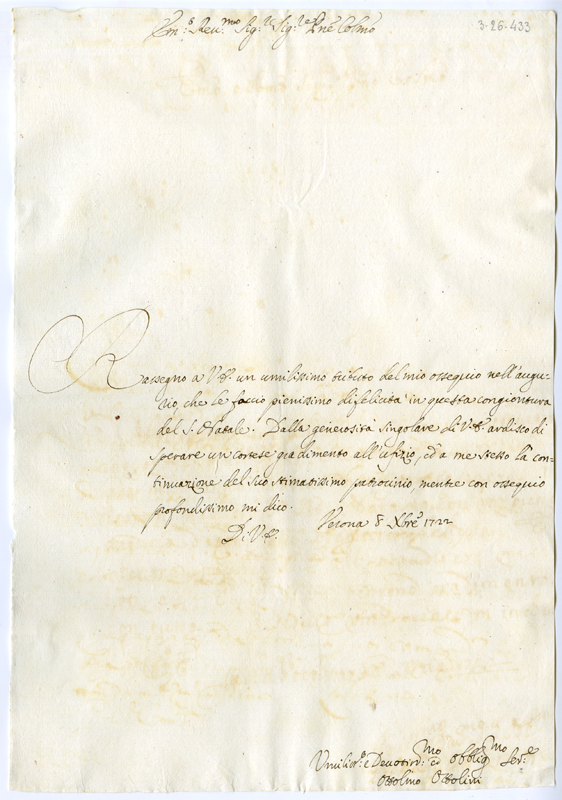 Em.º Reu.mo Sig.r Sig.re Pne Colmo
3-26-433
Rassegno a V.E. un umilissimo tributo del mio ossequio nell'augu-
rio, che le faccio pienissimo di felicità in questa congiontura
del S. Natale. Dalla generosità singolare di V.E. ardisco di
sperare un cortese gradimento all'ufizio, ed a me stesso la con=
tinuazione del suo stimatissimo patrocinio, mentre con ossequio
profondissimo mi dico.
Di V.E. Verona 8 Xbre 1722
Umilis.º e Deuotis.mo ed obblig.mo Ser.e
Ottolino Ottolini